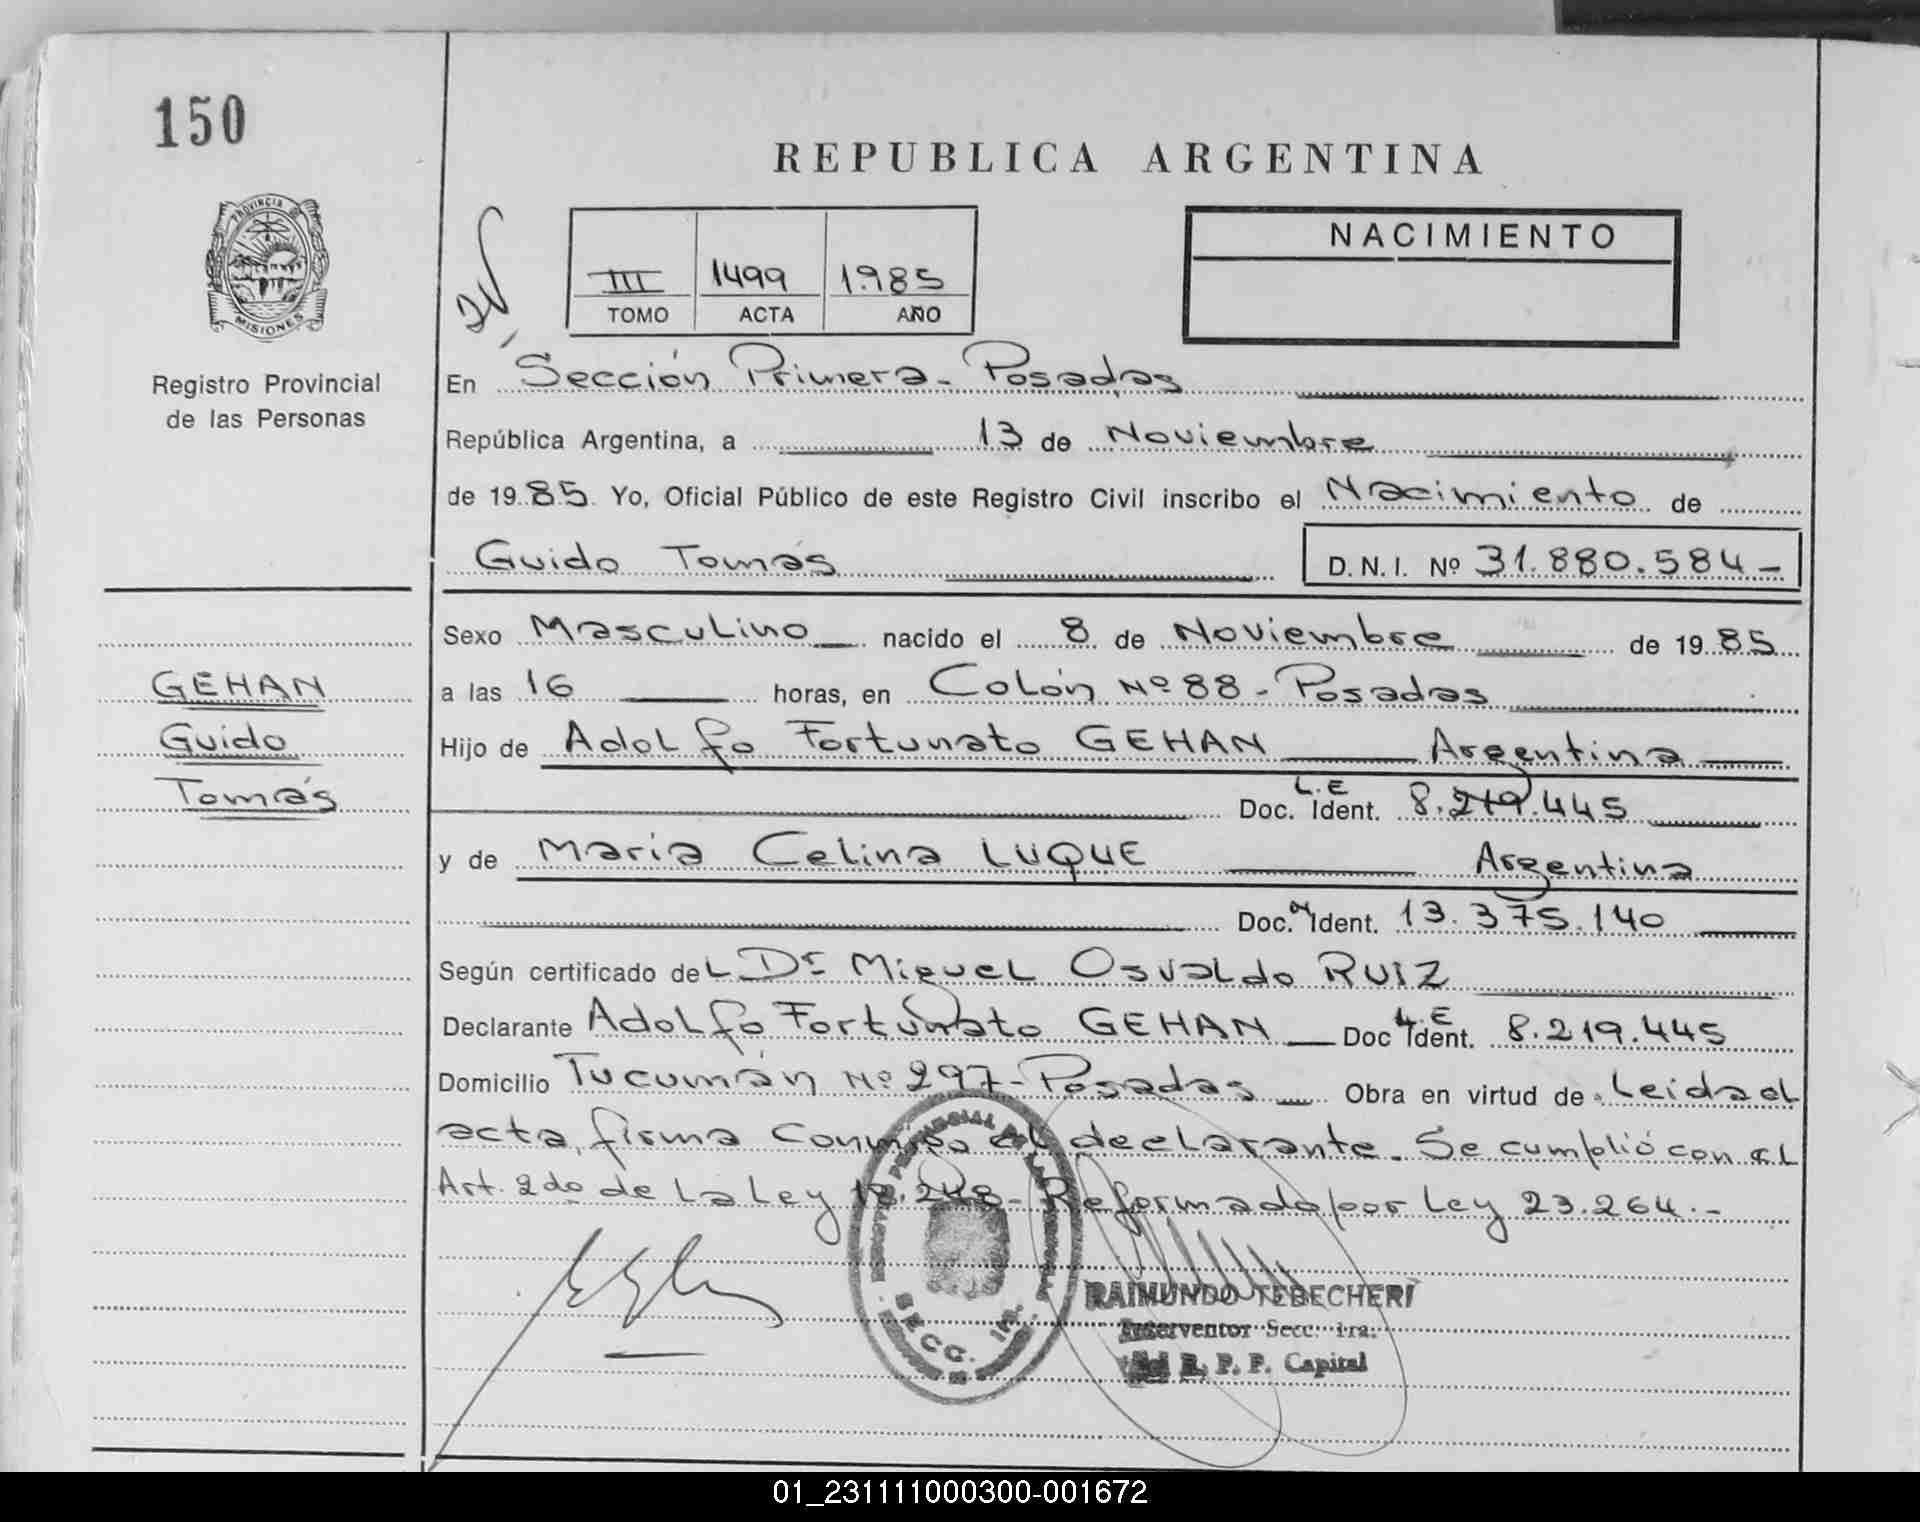 150
REPUBLICA ARGENTINA
PROVINCIA DE
MISIONES
Registro Provincial
de las Personas
III 1499 1.985
TOMO ACTA AÑO
NACIMIENTO
En Sección Primera - Posadas
República Argentina, a 13 de Noviembre
de 1985 Yo, Oficial Público de este Registro Civil inscribo el Nacimiento de
Guido Tomás D. N. I. Nº 31.880.584 -
Sexo Masculino nacido el 8 de Noviembre de 1985
a las 16 horas, en Colón Nº 88 - Posadas
Hijo de Adolfo Fortunato GEHAN Argentina
L.E
Doc. Ident. 8.219.445
y de Maria Celina LUQUE Argentina
Doc. Ident. 13.375.140
Según certificado del Dr Miguel Osvaldo RUIZ
Declarante Adolfo Fortunato GEHAN L.E Doc Ident. 8.219.445
Domicilio Tucumán Nº 297 - Posadas Obra en virtud de Leida el
acta, firma conmigo el declarante. Se cumplió con el
Art. 2do de la Ley 18.248 - Reformado por Ley 23.264.-
GEHAN
Guido
Tomás
SECC. 1ra.
RAIMUNDO TEBECHERI
Interventor Secc. 1ra.
del R. P. P. Capital
01_231111000300-001672